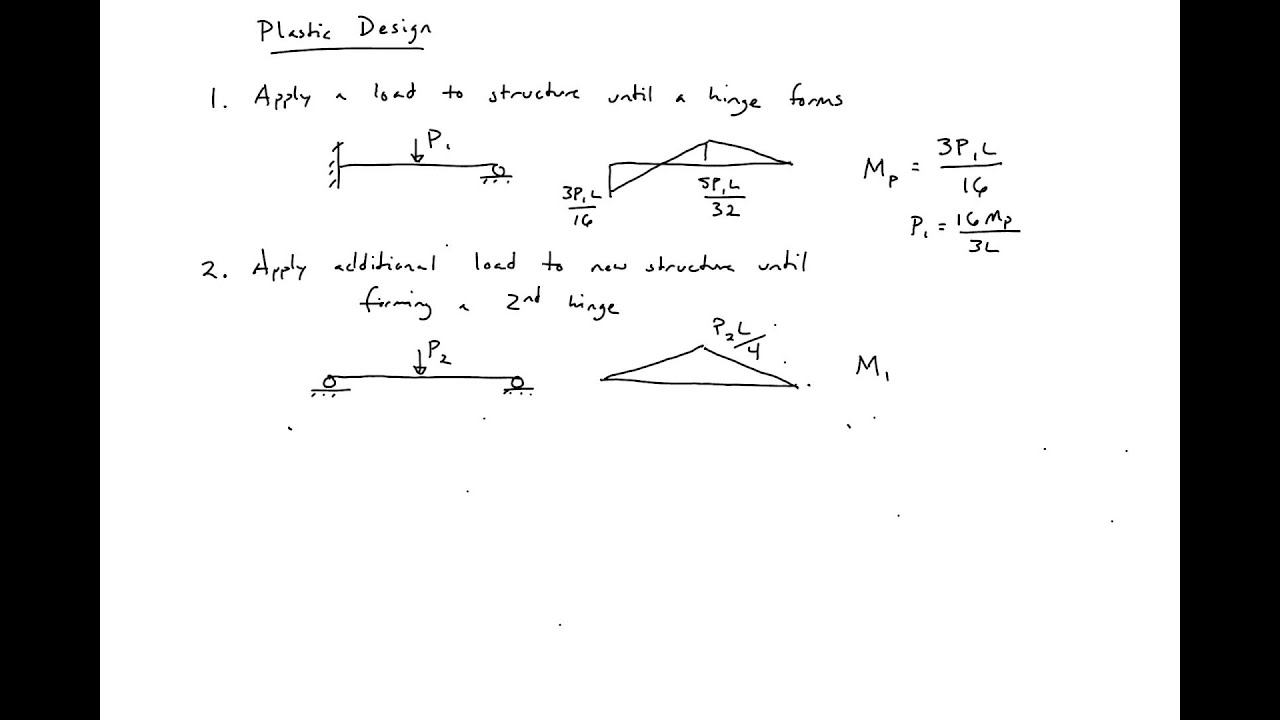 Plastic Design
1. Apply a load to structure until a hinge forms
P₁
3P₁L/16
5P₁L/32
Mₚ = 3P₁L/16
P₁ = 16Mₚ/3L
2. Apply additional load to new structure until
forming a 2nd hinge
P₂
P₂L/4
M₁